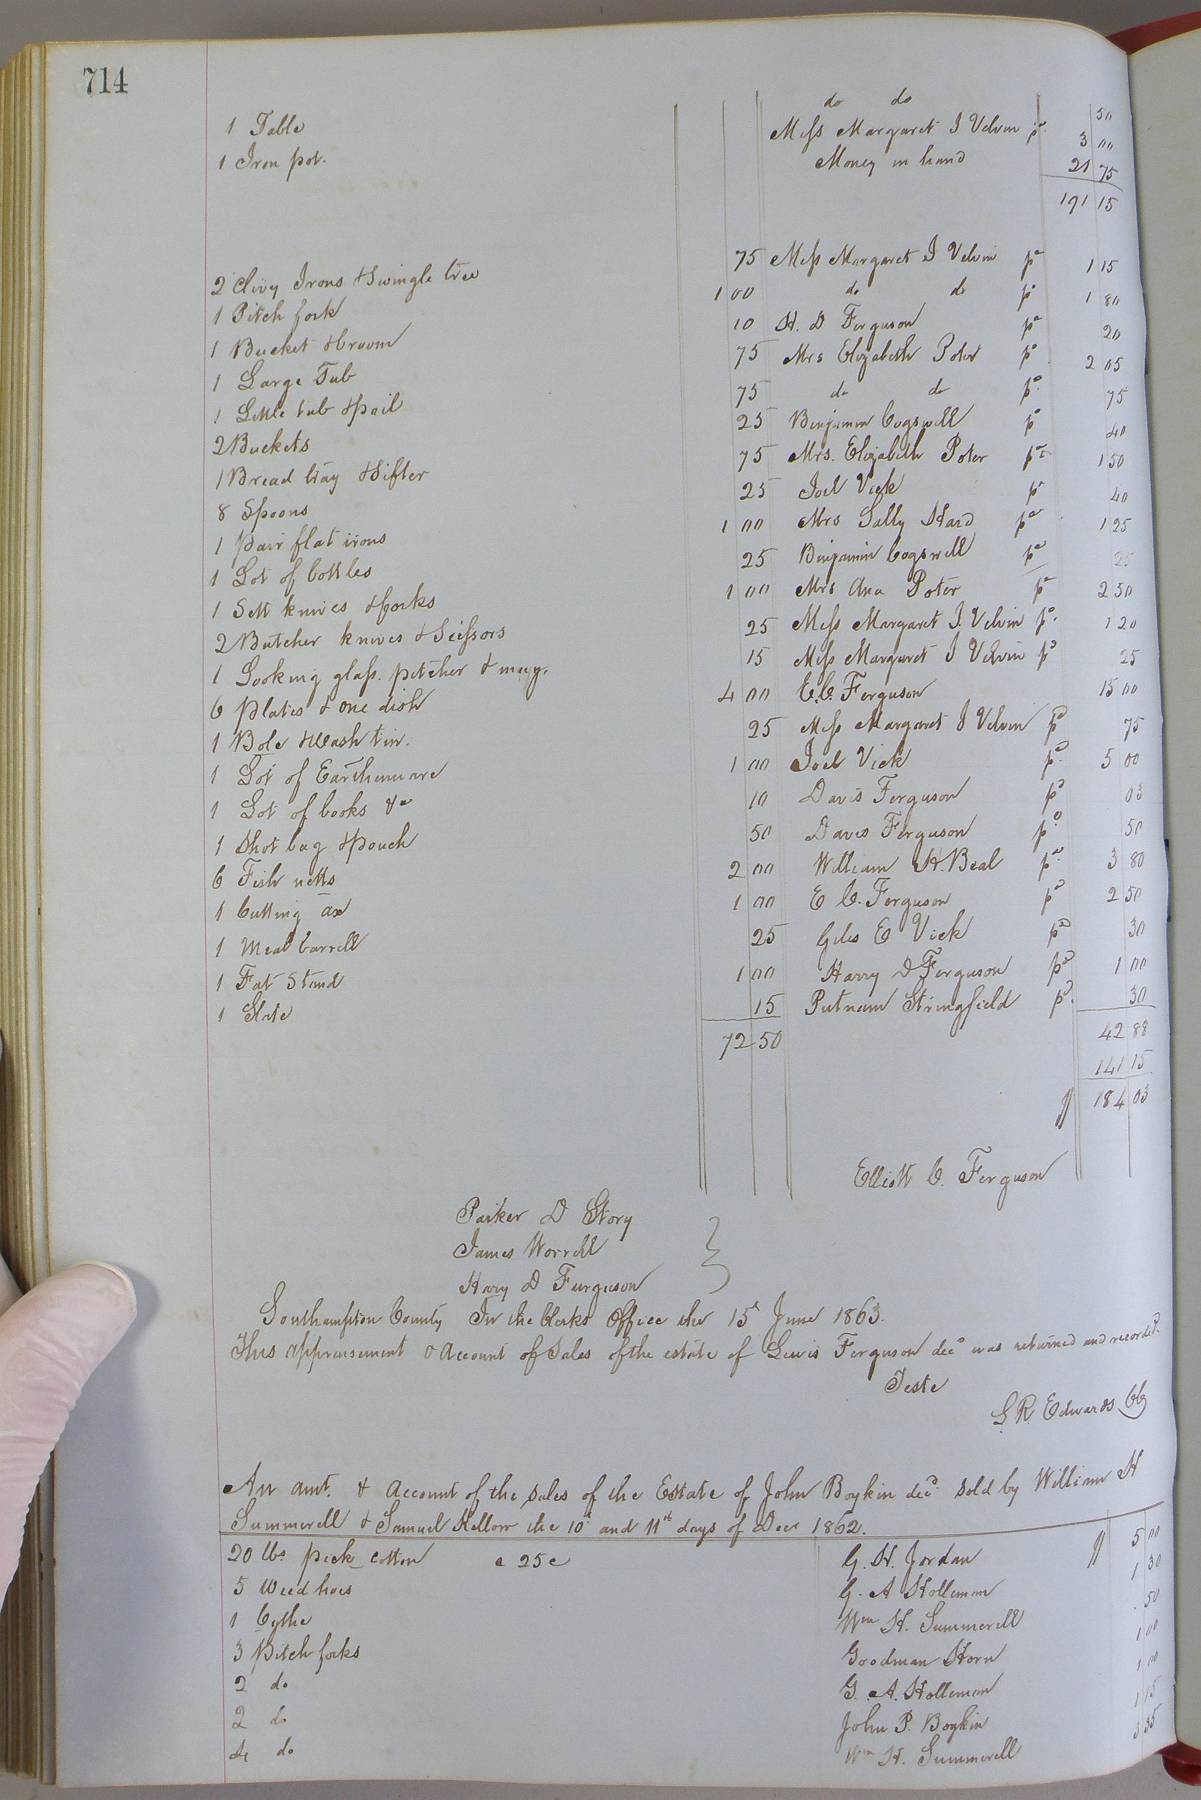 714
do do 50
1 Table Miss Margaret J Velvin pd 3 00
1 Iron pot. Money in hand 21 75
191 15
2 Clivy Irons & Swingle tree 75 Miss Margaret J Velvin pd 1 15
1 Pitch fork 1 00 do do pd 1 80
1 Bucket & broom 10 H. D Ferguson pd 20
1 Large Tub 75 Mrs Elizabeth Poter pd 2 05
1 Little tub & pail 75 do do pd 75
2 Buckets 25 Benjamin Cogswell pd 40
1 Bread tray & Sifter 75 Mrs. Elizabeth Poter pd 1 50
8 Spoons 25 Joel Vick pd 40
1 pair flat irons 1 00 Mrs Sally Hard pd 1 25
1 Lot of bottles 25 Benjamin Cogswell pd 25
1 Sett knives & forks 1 00 Mrs Ana Poter pd 2 50
2 Butcher knives & Scissors 25 Miss Margaret J. Velvin pd. 1 20
1 Looking glass. pitcher & mug. 15 Miss Margaret J Velvin pd 25
6 plates & one dish 4 00 E. C. Ferguson 15 00
1 Bole & Wash tin. 25 Miss Margaret J Velvin pd 75
1 Lot of Earthenware 1 00 Joel Vick pd 5 00
1 Lot of books &c 10 Davis Ferguson pd 03
1 Shot bag & pouch 50 Davis Ferguson pd 50
6 Fish netts 2 00 William H. Beal pd 3 80
1 Cutting ax 1 00 E C. Ferguson pd 2 50
1 Meal barrell 25 Giles E Vick pd 30
1 Fat Stand 1 00 Harry D Ferguson pd 1 00
1 Slate 15 Putnam Stringfield pd. 30
72 50 42 88
141 15
184 03
Elliott C. Ferguson
Parker D Story
James Worrell
Hary D Furguson
Southampton County In the Clerks Office the 15th June 1863.
This appraisement & account of Sales of the estate of Lewis Ferguson decd was returned and recorded.
Teste
L R Edwards CC
An amt. & account of the Sales of the Estate of John Boykin decd. Sold by William H
Summerell & Samuel Kellow the 10th and 11th days of Decr 1862.
20 lbs pick cotton a 25c G. H. Jordan 5 00
5 Weed hoes G. A Holleman 1 30
1 Cythe Wm H. Summerell 50
3 Pitch forks Goodman Horn 1 00
2 do G. A. Holleman 1 00
2 do John P. Boykin 1 15
4 do Wm H. Summerell 35